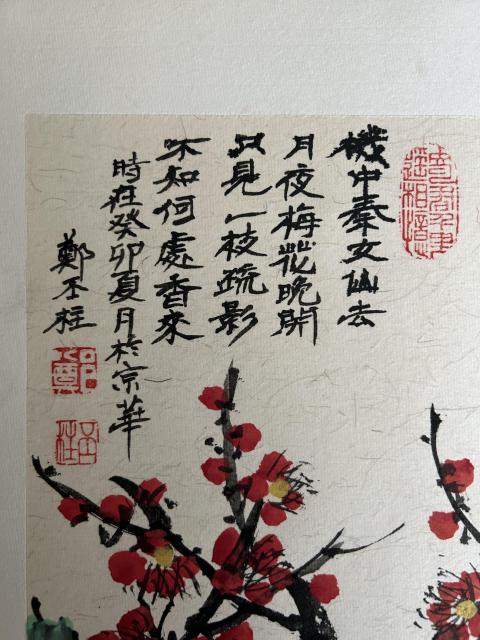 機中秦女仙去
月夜梅花晚開
只見一枝疏影
不知何處香來
時在癸卯夏月於京華
鄭丕柱